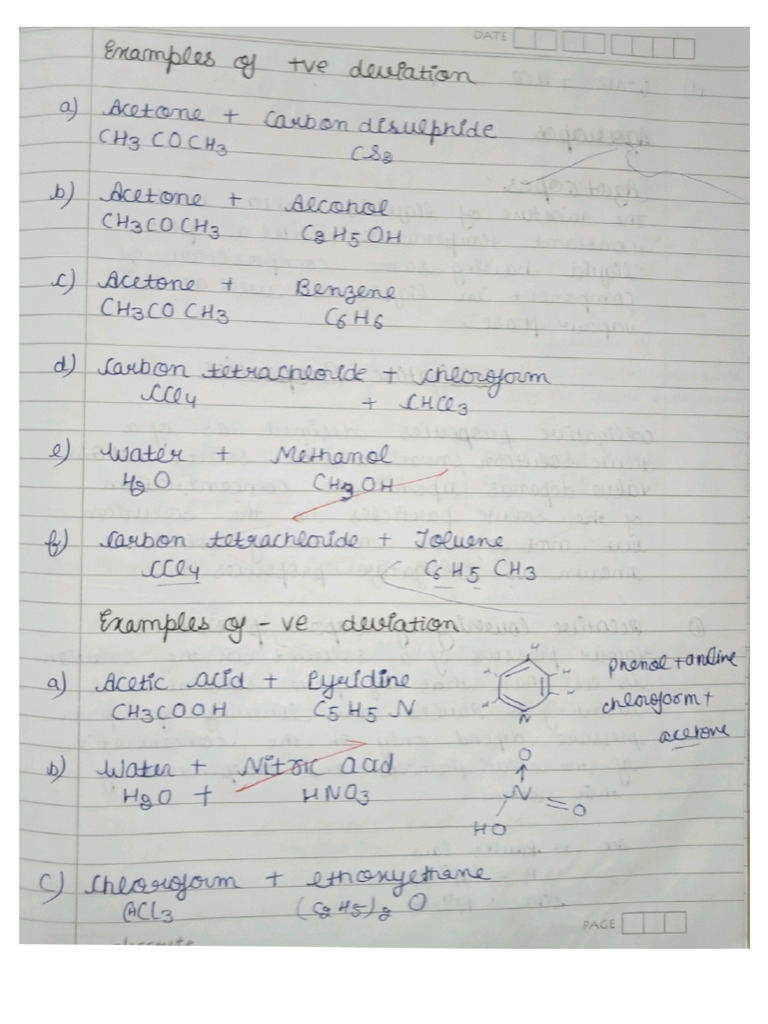 DATE
Examples of +ve deviation
a) Acetone + Carbon disulphide
CH3 CO CH3 CS2
b) Acetone + Alcohol
CH3CO CH3 C2H5OH
c) Acetone + Benzene
CH3CO CH3 C6H6
d) Carbon tetrachloride + chloroform
CCl4 + CHCl3
e) Water + Methanol
H2O CH3OH
f) Carbon tetrachloride + Toluene
CCl4 C6H5 CH3
Examples of -ve deviation
a) Acetic acid + Pyridine
CH3COOH C5H5N
N
phenol + aniline
chloroform +
acetone
b) Water + Nitric acid
H2O + HNO3
O
N
O
HO
c) Chloroform + ethoxyethane
CHCl3 (C2H5)2O
PAGE